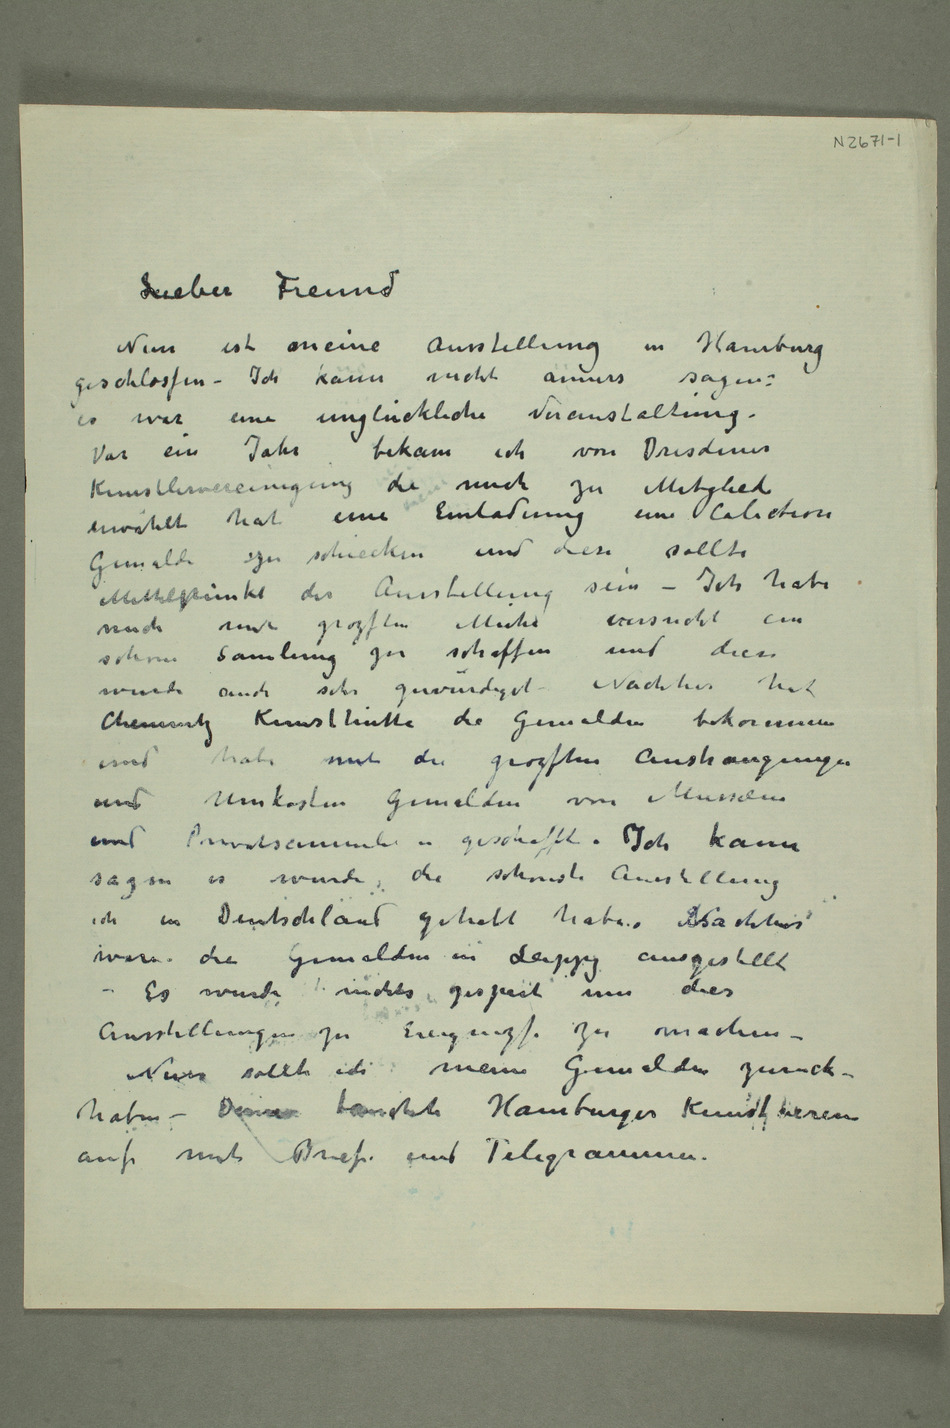 N 2671-1
Lieber Freund
Nun ist meine Ausstellung in Hamburg
geschlossen – Ich kann nicht anners sagen:
es war eine unglückliche Veranstaltung.
Vor ein Jahr bekam ich von Dresdener
Kunstlervereinigung die mich zu Mitglied
erwählt hat eine Einladung eine Colection
Gemälde zu schiecken und diese sollte
Mittelpunkt der Ausstellung sein – Ich habe
mich mit grozsten Mühe versucht ein
schöne Samlung zu schaffen und diese
wurde auch sehr gewürdiget – Nachher hat
Chemnitz Kunsthütte die Gemälden bekommen
und habe mit die grozsten Anstrangungen
und Unkosten Gemälden von Museen
und Privatsammler geschafft. Ich kann
sagen es wurde die schönste Ausstellung
ich in Deutschland gehabt habe. Nachher
waren die Gemälden in Leipzig ausgestellt
– Es wurde nichts gespart um dies
Ausstellungen zu Ereignizs zu machen –
Nun sollte ich meine Gemälden zurück-
haben – Dann tauchte Hamburger Kunstverein
auf mit Briefe und Telegrammen.